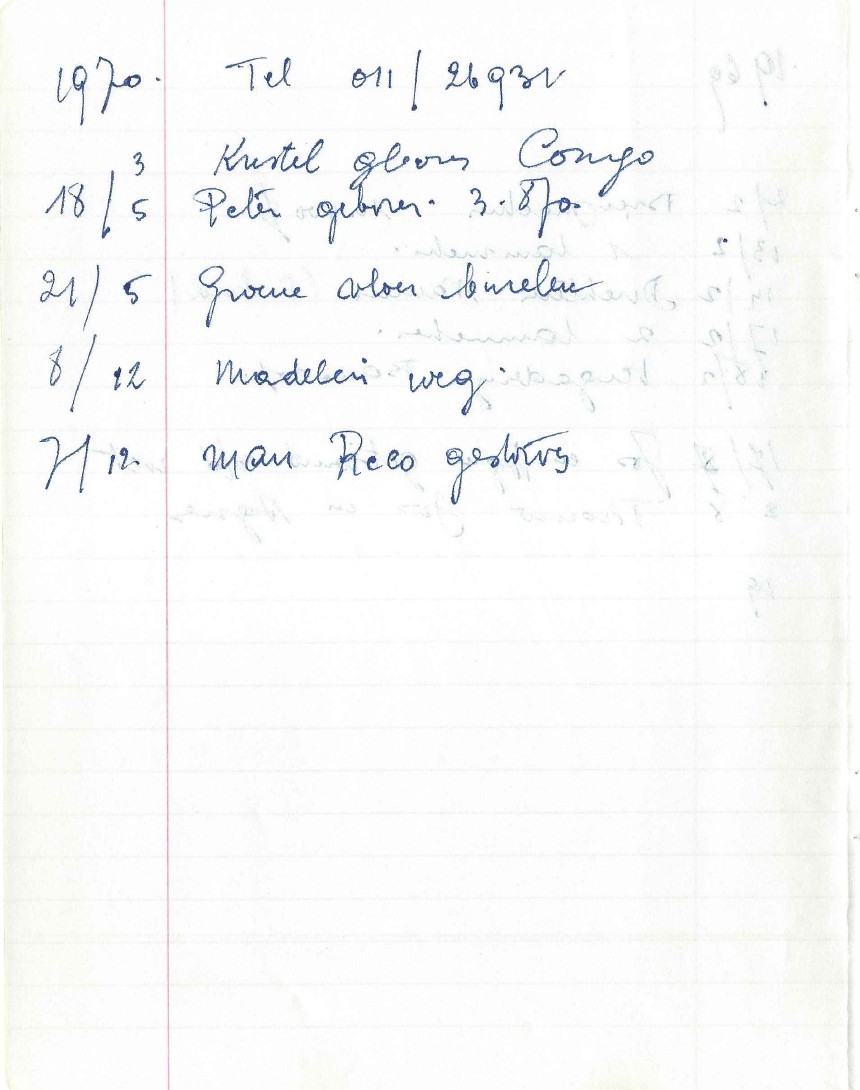 1970. Tel 011/26931
3 Kristel gboren Congo
18/5 Peter geboren. 3.8.70
21/5 Groene vloer
8/12 Madelein weg.
7/12. Man Reco gestorven